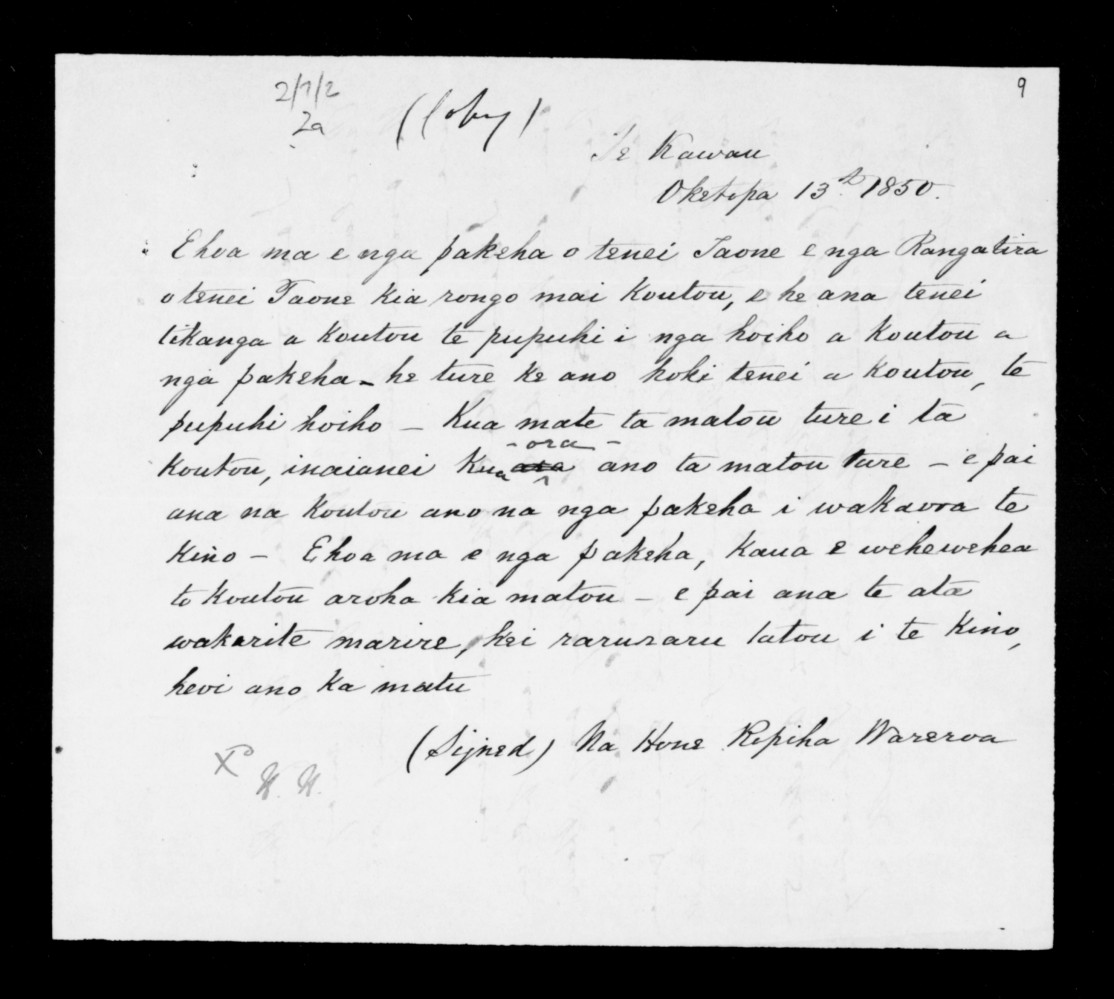 2/1/2
2a
9
(Copy)
Te Kawau
Oketopa 13th 1850.
Ehoa ma e nga pakeha o tenei Taone e nga Rangatira
o tenei Taone kia rongo mai koutou, e he ana tenei
tikanga a koutou te pupuhi i nga hoiho a koutou a
nga pakeha - he ture ke ano hoki tenei a koutou, te
pupuhi hoiho - Kua mate ta matou ture i ta
koutou, inaianei kua ora ano ta matou ture - e pai
ana na koutou ano na nga pakeha i wakaora te
kino - Ehoa ma e nga pakeha, kaua e wehewehea
to koutou aroha kia matou - e pai ana te ata
wakarite marire, kei raruraru tatou i te kino,
heoi ano ka mutu
(Signed) Na Hone Ropiha Wareroa